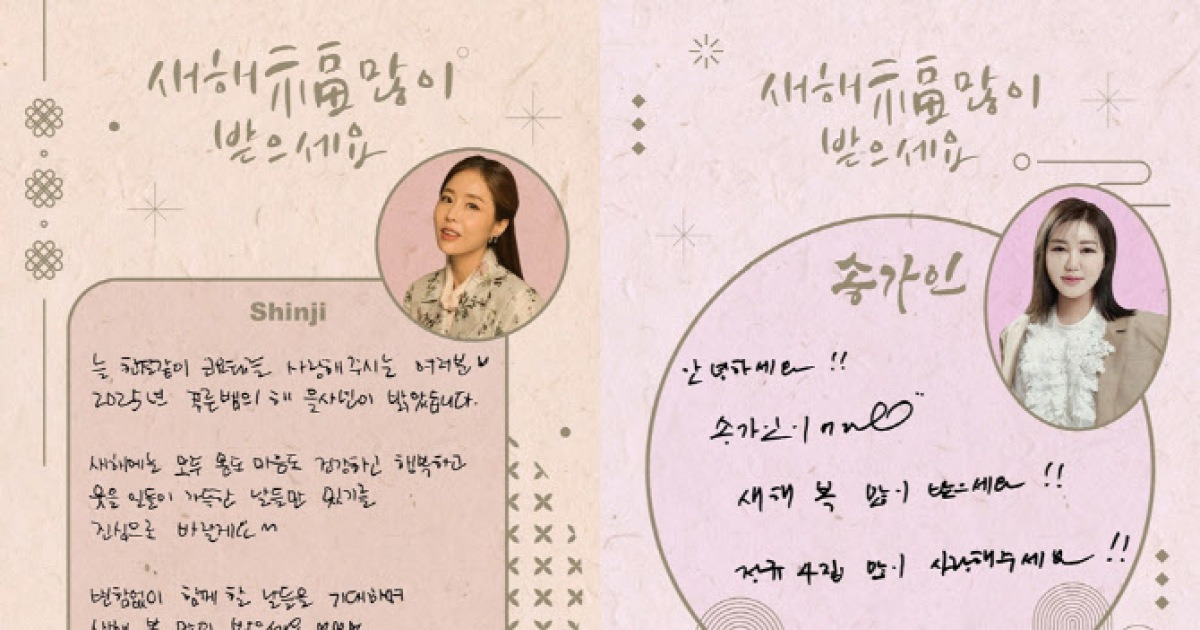 새해福많이
받으세요
Shinji
늘 한결같이 코요태를 사랑해주시는 여러분
2025년 푸른뱀의 해 을사년이 밝았습니다.
새해에는 모두 몸도 마음도 건강하고 행복하고
웃을 일들이 가득한 날들만 있기를
진심으로 바랄게요~
변함없이 함께 할 날들을 기대하며
새해 복 많이 받으세요
새해福많이
받으세요
송가인
안녕하세요!!
송가인
새해 복 많이 받으세요!!
정규 4집 많이 사랑해주세요!!